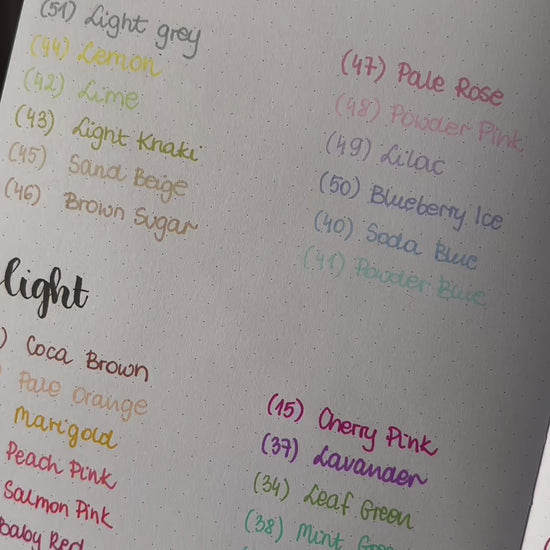 (51) Light grey
(44) Lemon
(42) Lime
(43) Light Khaki
(45) Sand Beige
(46) Brown Sugar
(47) Pale Rose
(48) Powder Pink
(49) Lilac
(50) Blueberry Ice
(40) Soda Blue
(41) Powder Blue
light
) Coca Brown
Pale Orange
Marigold
Peach Pink
Salmon Pink
Baby Red
(15) Cherry Pink
(37) Lavander
(34) Leaf Green
(38) Mint